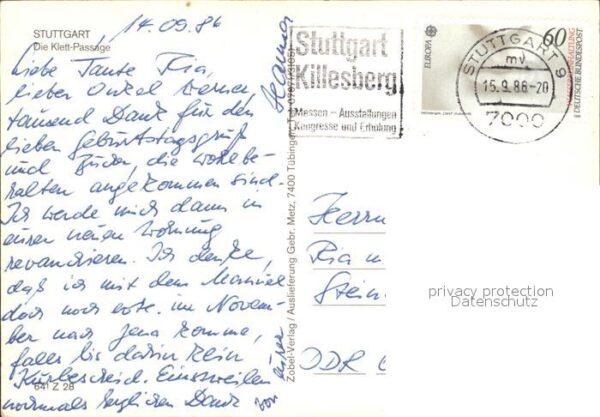 14.09.86
STUTTGART
Die Klett-Passage
Liebe Tante Ria,
lieber Onkel Werner,
tausend Dank für den
lieben Geburtstagsgruß
und Bücher, die wohlbe-
halten angekommen sind.
Ich werde mich dann in
eurer neuen Wohnung
revanchieren. Ich denke,
daß ich mit dem Manuel
doch noch evtl. im Novem-
ber nach Jena komme,
falls bis dahin kein
Kurbescheid. Einstweilen
nochmals herzlichen Dank von
641 Z 28
eurer
Zobel-Verlag / Auslieferung Gebr. Metz, 7400 Tübingen, Tel.
Stuttgart
Killesberg
Messen - Ausstellungen
Kongresse und Erholung
EUROPA
60
DEUTSCHE BUNDESPOST
STUTTGART 9
mv
15.9.86-20
7000
Herrn
Ria u
Stein
DDR 6
privacy protection
Datenschutz